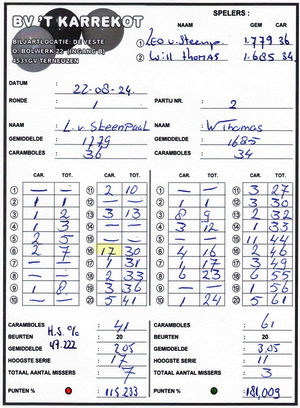 BV 'T KARREKOT
BILJARTLOCATIE: DE VESTE
O. BOLWERK 22 (INGANG B)
4531GV TERNEUZEN
SPELERS :
NAAM GEM CAR
1 Leo v. Steenp. 1.779 36
2 Will Thomas 1.685 34
DATUM : 22-08-24
RONDE : 1 PARTIJ NR. : 2
NAAM : L. v. SteenPaal NAAM : W Thomas
GEMIDDELDE : 1779 GEMIDDELDE : 1685
CARAMBOLES : 36 CARAMBOLES : 34
CAR. TOT. CAR. TOT. CAR. TOT. CAR. TOT.
1 — — 11 2 10 1 — — 11 3 27
2 1 1 12 — — 2 — — 12 3 30
3 1 2 13 3 13 3 8 9 13 2 32
4 1 3 14 — — 4 3 12 14 1 33
5 2 5 15 — — 5 — — 15 11 44
6 2 7 16 17 30 6 4 16 16 2 46
7 — — 17 1 31 7 1 17 17 3 49
8 — — 18 2 33 8 6 23 18 6 55
9 1 8 19 3 36 9 — — 19 1 56
10 — — 20 5 41 10 1 24 20 5 61
CARAMBOLES : 41 CARAMBOLES : 61
BEURTEN : 20 BEURTEN : 20
H.S. %
47.222
GEMIDDELDE : 2.05 GEMIDDELDE : 3.05
HOOGSTE SERIE : 17 HOOGSTE SERIE : 11
TOTAAL AANTAL MISSERS : 7 TOTAAL AANTAL MISSERS : 3
PUNTEN % : 115.233 PUNTEN % : 181,009